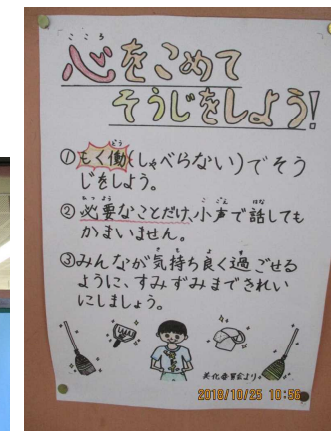 心をこめて
そうじをしよう!
①もく働(しゃべらない)でそう
じをしよう。
②必要なことだけ、小声で話しても
かまいません。
③みんなが気持ち良く過ごせる
ように、すみずみまできれい
にしましょう。
美化委員会より。
2018/10/25 10:56